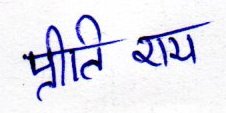 प्रीति राय